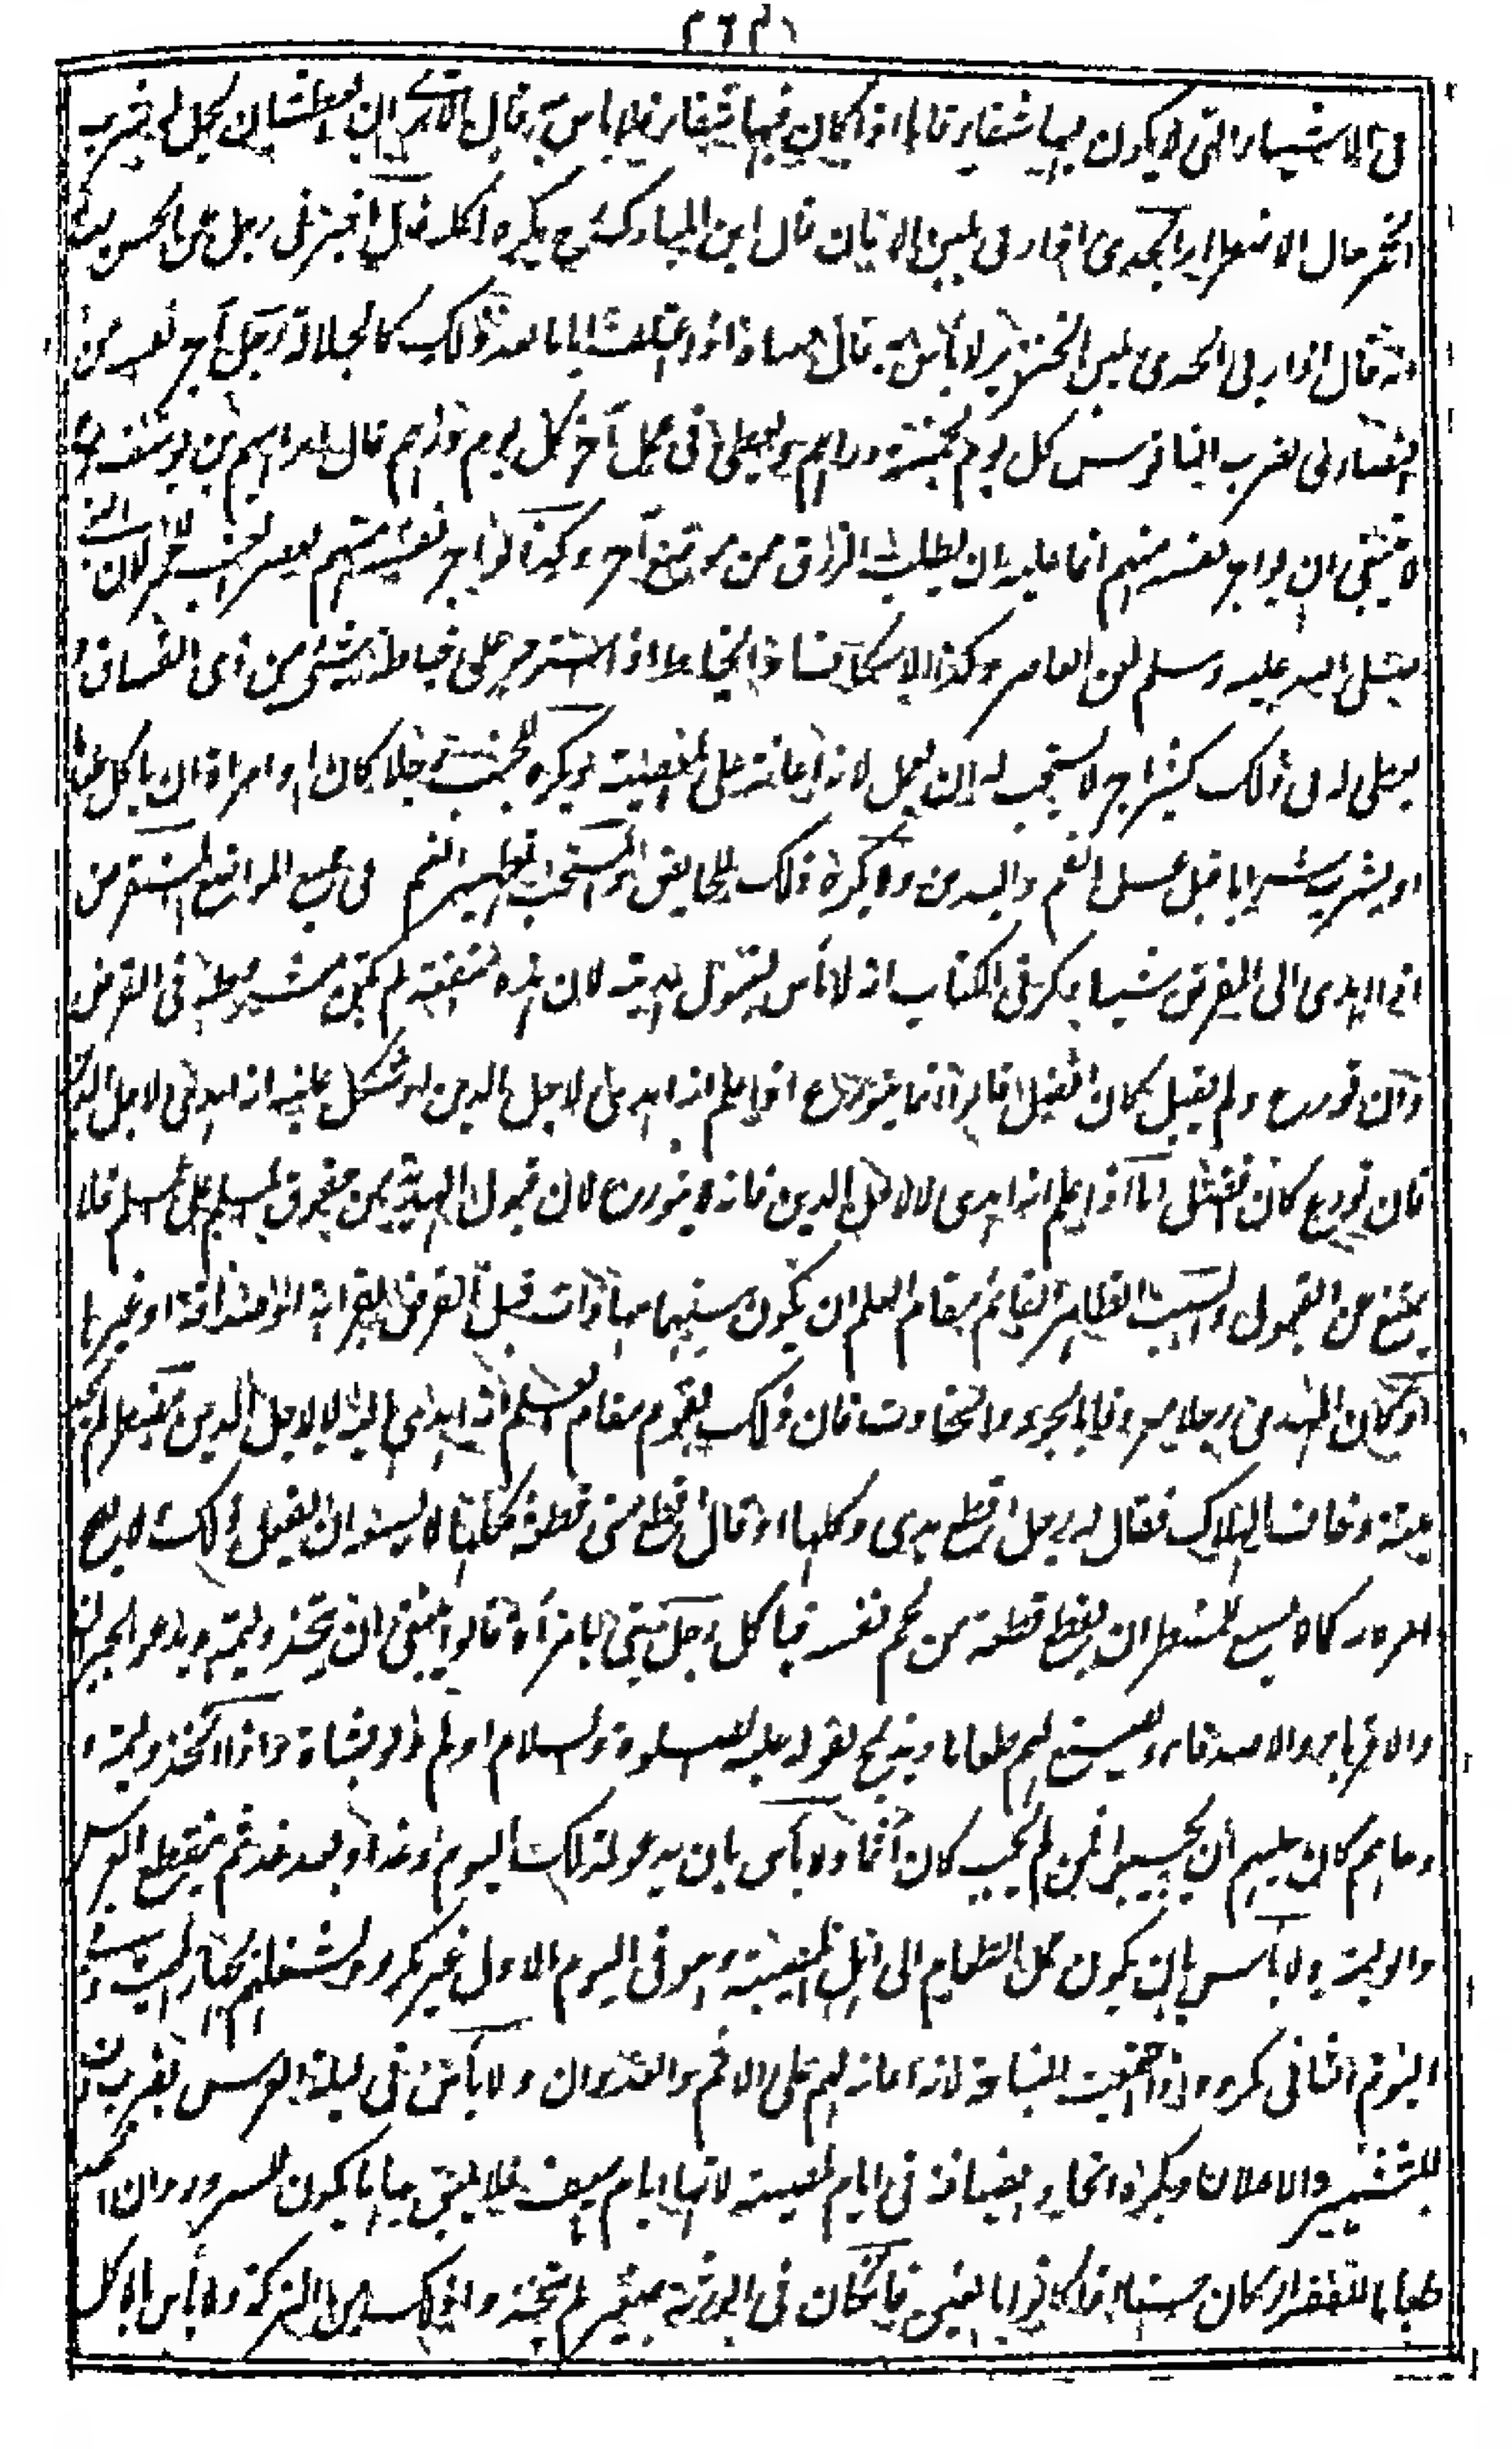 فى الاشياء التى لا يكون فيها شفاء فاما اذا كان فيها شفاء فلا باس به قال الا ترى ان العطشان يحل له شرب
الخمر حال الاضطرار الجدى اذا ربى بلبن الاتان قال ابن المبارك رح يكره اكله قال اخبرنى رجل عن الحسن
انه قال اذا ربى الجدى بلبن الخنزير لا باس به قال معناه اذا اعتلف اياما بعد ذلك كالجلالة رجل آجر نفسه من
النصارى لضرب الناقوس كل يوم بخمسة دراهم ويعطى فى عمل آخر كل يوم درهم قال ابراهيم بن يوسف رح
لا ينبغى ان يواجر نفسه منهم انما عليه ان يطلب الرزق من موضع آخر وكذا لو آجر نفسه منهم بعصر العنب للخمر لان النبى
صلى الله عليه وسلم لعن العاصر وكذا الاسكاف والخياط اذا استوجر على خياطة شىء من زى الفساق و
يعطى له فى ذلك كثير اجر لا يستحب له ان يعمل لانه اعانة على المعصية ويكره للجنب رجلا كان او امراة ان ياكل طعاما
او يشرب شرابا قبل غسل الفم واليدين ولا يكره ذلك للحائض والمستحب تطهير الفم فى جميع المواضع المستقرض
اذا اهدى الى المقرض شيئا ذكر فى الكتاب انه لا باس بقبول هديته لان هذه منفعة لم تكن مشروطة فى القرض
وان تورع ولم يقبل كان افضل قالوا انما يتورع اذا علم انه اهدى لاجل الدين او اشكل عليه انه اهدى لاجل الدين
فان تورع كان افضل اما اذا علم انه اهدى لا لاجل الدين فانه لا يتورع لان قبول الهدية من حقوق المسلم على المسلم فلا
يمتنع من القبول والسبب الظاهر القائم مقام العلم ان يكون بينهما مهاداة قبل القرض لقرابة او صداقة او غيرها
او كان المهدى رجلا معروفا بالجود والسخاوة فان ذلك يقوم مقام العلم انه اهدى اليه لا لاجل الدين مضطر لم يجد
ميتة وخاف الهلاك فقال له رجل اقطع يدى وكلها او قال اقطع منى قطعة فكلها لا يسعه ان يفعل ذلك لا يصح
الامر به كما لا يسع للمضطر ان يقطع قطعة من لحم نفسه فياكل رجل بنى بامرأة قالوا ينبغى ان يتخذ وليمة ويدعو الجيران
والاقرباء والاصدقاء ويصنع لهم طعاما ويذبح لقوله عليه الصلوة والسلام اولم ولو بشاة واذا اتخذ وليمة و
دعاهم كان عليهم ان يجيبوا فمن لم يجب كان آثما ولا باس بان يدعو لذلك اليوم وغدا وبعد غد ثم ينقطع العرس
والوليمة ولا بأس بان يكون حمل الطعام الى اهل المصيبة وهو فى اليوم الاول غير مكروه لشغلهم بجهاز الميت وفى
اليوم الثانى مكروه اذا اجتمعت النياحة لانه اعانة لهم على الاثم والعدوان ولا بأس فى ليلة العرس بضرب الدف
للتشهير والاعلان ويكره اتخاذ الضيافة فى ايام المصيبة لانها ايام اسف فلا يليق بها ما يكون للسرور وان اتخذ
طعاما للفقراء كان حسنا اذا كانوا بالغين فان كان فى الورثة صغير لم يتخذ وا ذلك من التركة ولا بأس بالاكل